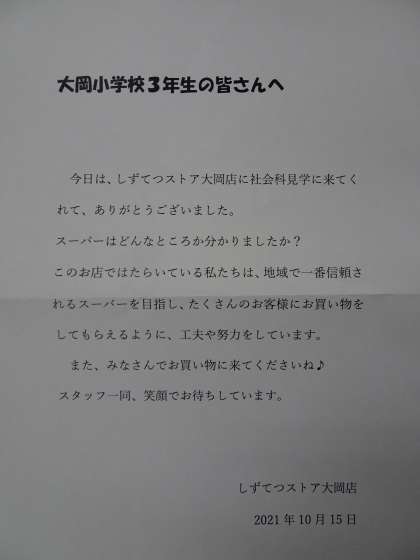 大岡小学校3年生の皆さんへ
今日は、しずてつストア大岡店に社会科見学に来てく
れて、ありがとうございました。
スーパーはどんなところか分かりましたか?
このお店ではたらいている私たちは、地域で一番信頼さ
れるスーパーを目指し、たくさんのお客様にお買い物を
してもらえるように、工夫や努力をしています。
また、みなさんでお買い物に来てくださいね♪
スタッフ一同、笑顔でお待ちしています。
しずてつストア大岡店
2021年10月15日